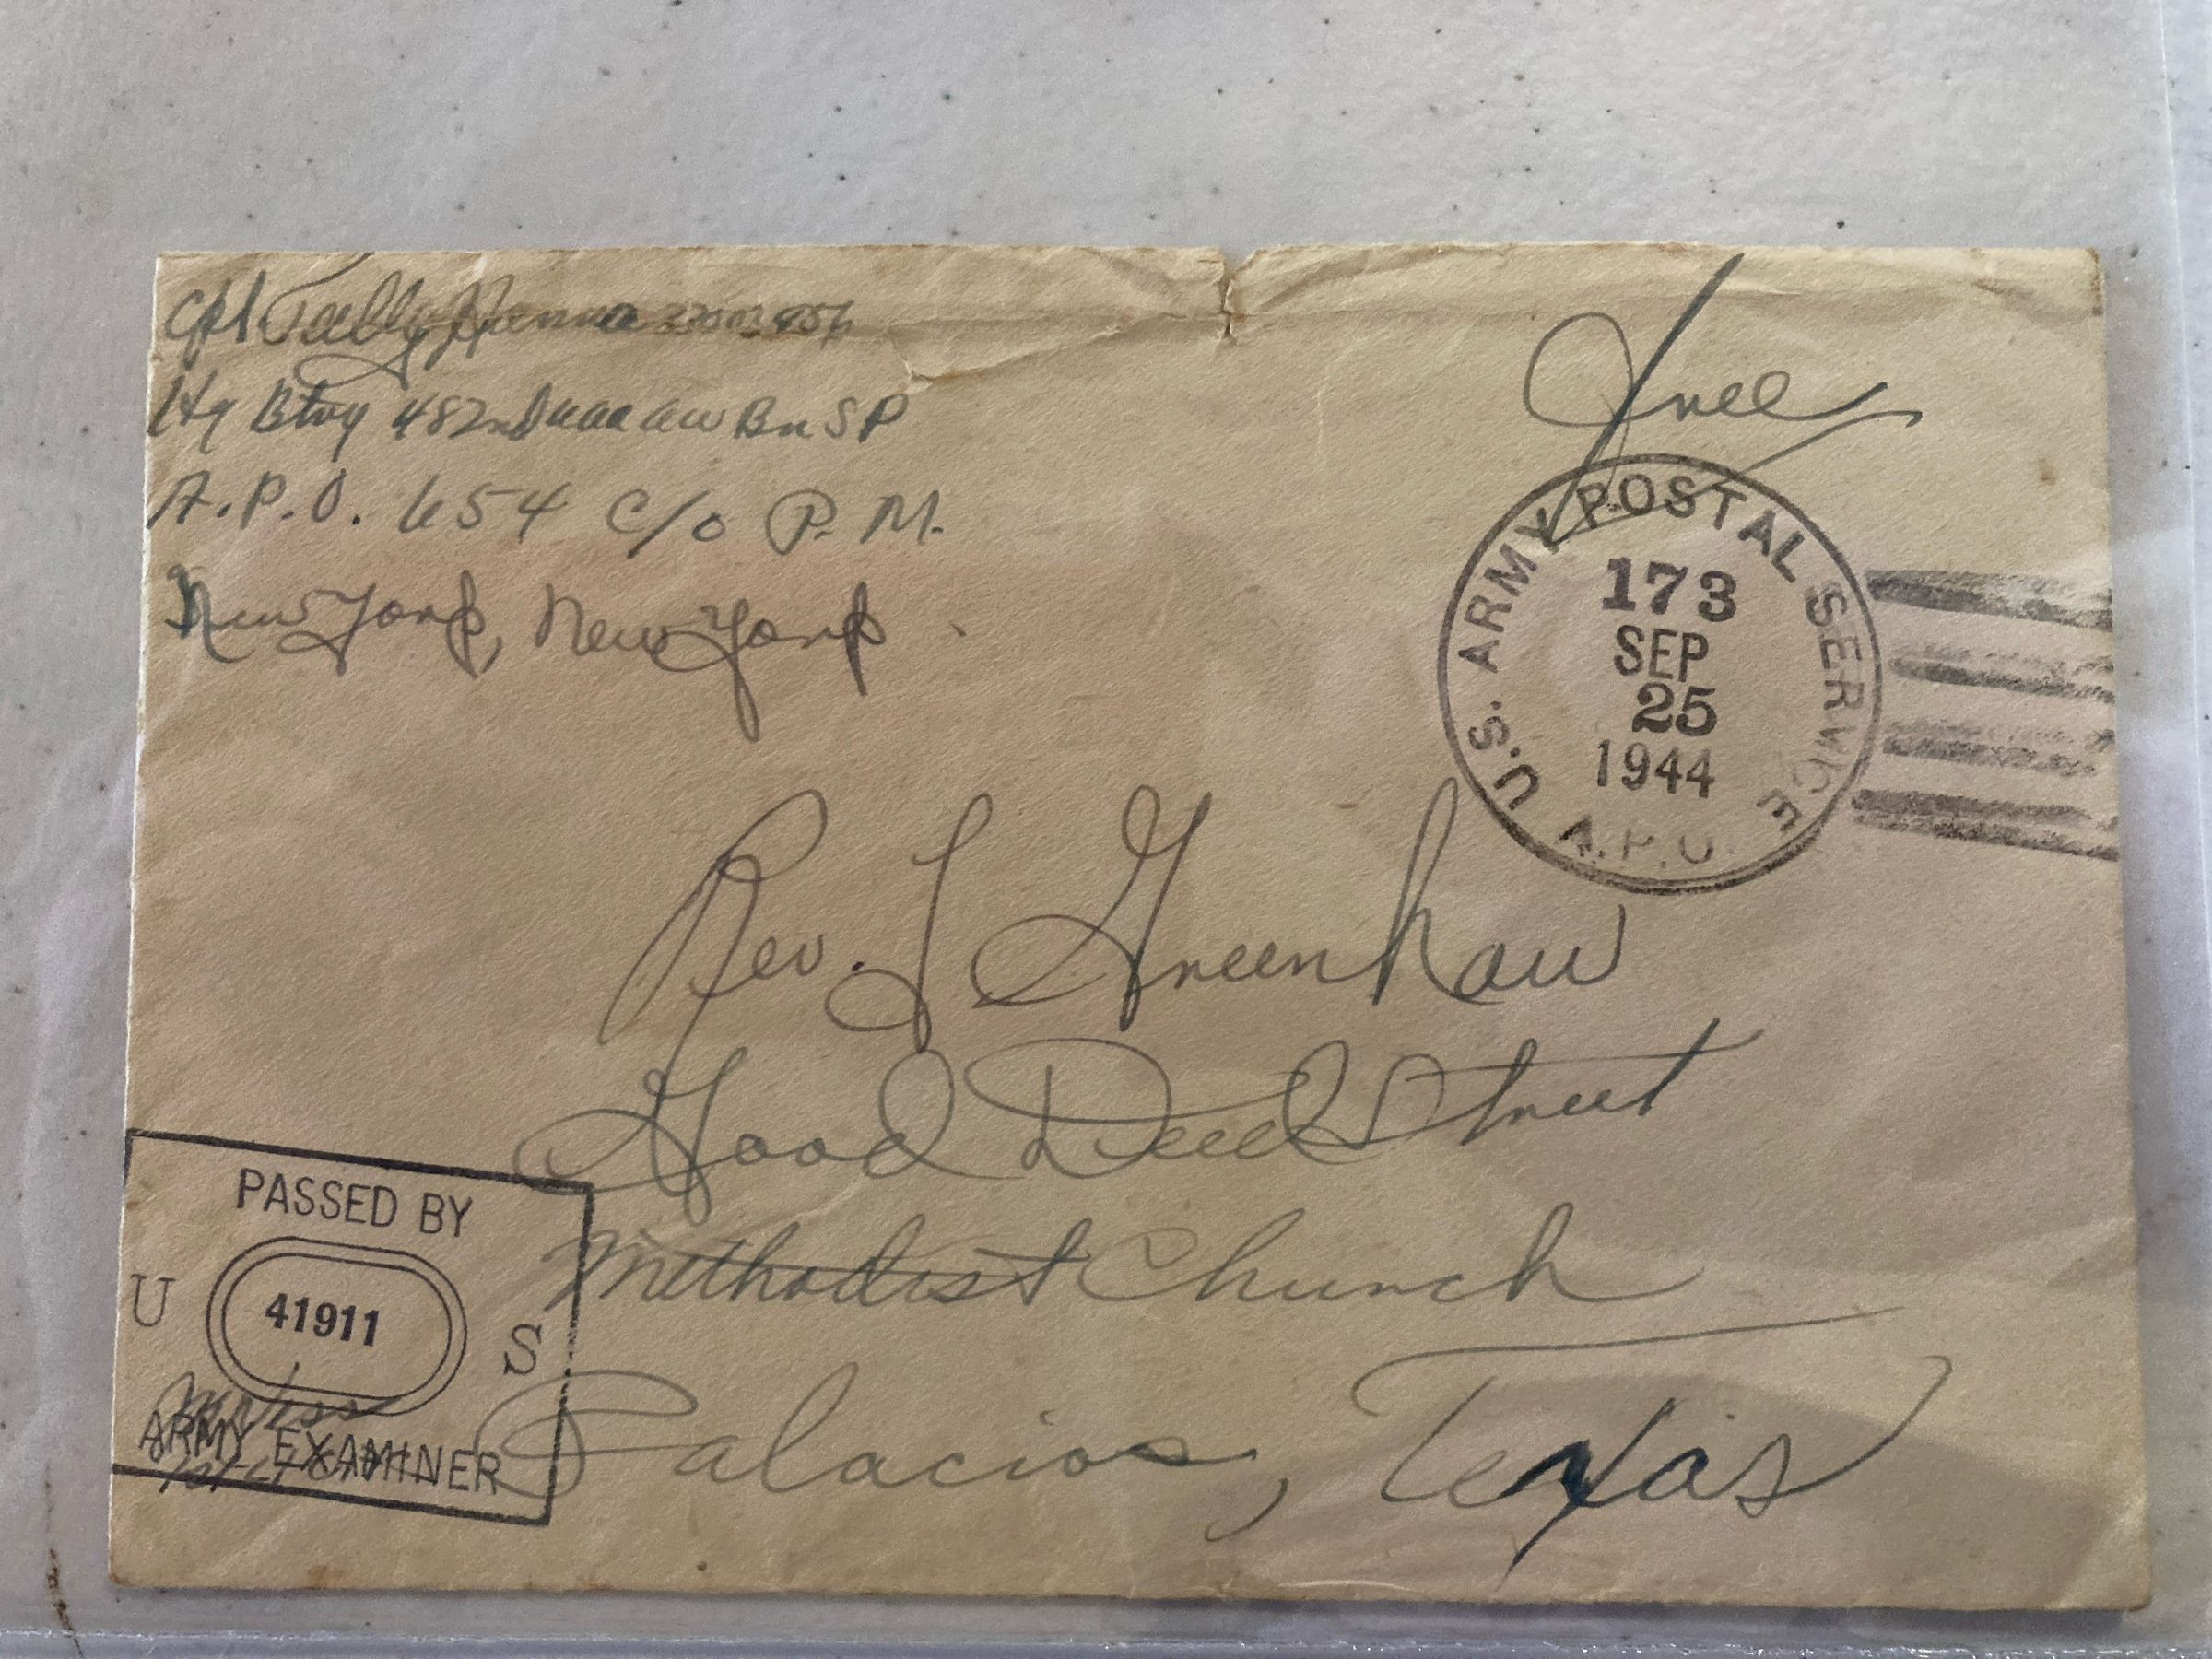 Cpl Tully Hanna
Hq Btry 482nd aaa aw Bn SP
A.P.O. 654 c/o P.M.
New York, New York.
Free
U.S. ARMY POSTAL SERVICE
173
SEP
25
1944
A.P.O.
Rev. J Greenhaw
Good Deed Street
Methodist Church
Palacios, Texas
PASSED BY
U 41911 S
ARMY EXAMINER